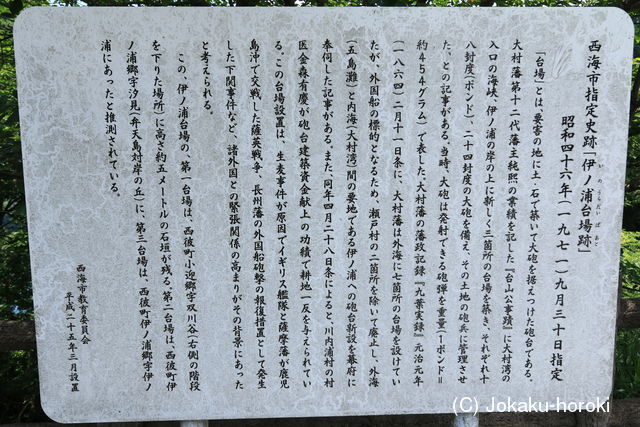 西海市指定史跡「伊ノ浦台場跡」
いのうらだいばあと
昭和四十六年（一九七一）九月三十日指定
「台場」とは、要害の地に土・石で築いて大砲を据えつけた砲台である。
大村藩第十二代藩主純熈の業績を記した『台山公事蹟』に大村湾の
入口の海峡、伊ノ浦の岸の上に新しく三箇所の台場を築き、それぞれ十
八封度（ポンド）、二十四封度の大砲を備え、その土地の砲兵に管理させ
た、との記事がある。当時、大砲は発射できる砲弾を重量（１ポンド＝
約４５４グラム）で表した。大村藩の藩政記録『九葉実録』元治元年
（一八六四）二月十一日条に、大村藩は外海に七箇所の台場を設けてい
たが、外国船の標的となるため、瀬戸村の二箇所を除いて廃止し、外海
（五島灘）と内海（大村湾）間の要地である伊ノ浦への砲台新設を幕府に
奉伺した記事がある。また、同年四月二十八日条によると、川内浦村の村
医金森有慶が砲台建築資金献上の功績で耕地一反を与えられてい
る。この台場設置は、生麦事件が原因でイギリス艦隊と薩摩藩が鹿児
島沖で交戦した薩英戦争、長州藩の外国船砲撃の報復措置として発生
した下関事件など、諸外国との緊張関係の高まりがその背景にあった
と考えられる。
この、伊ノ浦台場の、第一台場は、西彼町小迎郷字双川谷（右側の階段
を下りた場所）に高さ約五メートルの石垣が残る。第二台場は、西彼町伊
ノ浦郷字汐見（弁天島対岸の丘）に、第三台場は、西彼町伊ノ浦郷字伊ノ
浦にあったと推測されている。
西海市教育委員会
平成二十五年三月設置
(C) Jokaku-horoki